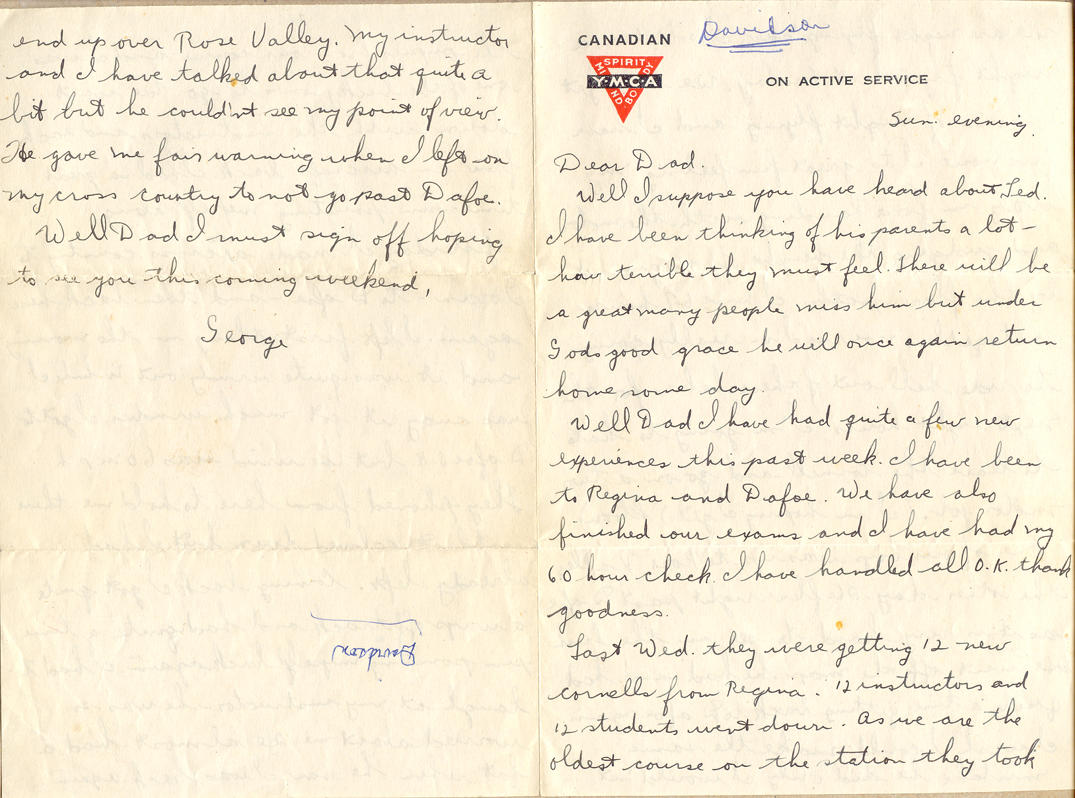 end up over Rose Valley. My instructor
and I have talked about that quite a
bit but he couldn't see my point of view.
He gave me fair warning when I left on
my cross country to not go past Dafoe.
Well Dad I must sign off hoping
to see you this coming weekend,
George
Davidson
Davidson
CANADIAN
SPIRIT
MIND
BODY
Y·M·C·A
ON ACTIVE SERVICE
Sun. evening.
Dear Dad.
Well I suppose you have heard about Ted.
I have been thinking of his parents a lot –
how terrible they must feel. There will be
a great many people miss him but under
Gods good grace he will once again return
home some day.
Well Dad I have had quite a few new
experiences this past week. I have been
to Regina and Dafoe. We have also
finished our exams and I have had my
60 hour check. I have handled all O.K. thank
goodness.
Last Wed. they were getting 12 new
cornells from Regina. 12 instructors and
12 students went down. As we are the
oldest course on the station they took